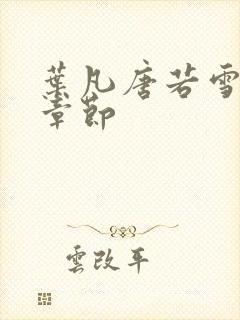 葉凡唐若雪
章節
雲改平